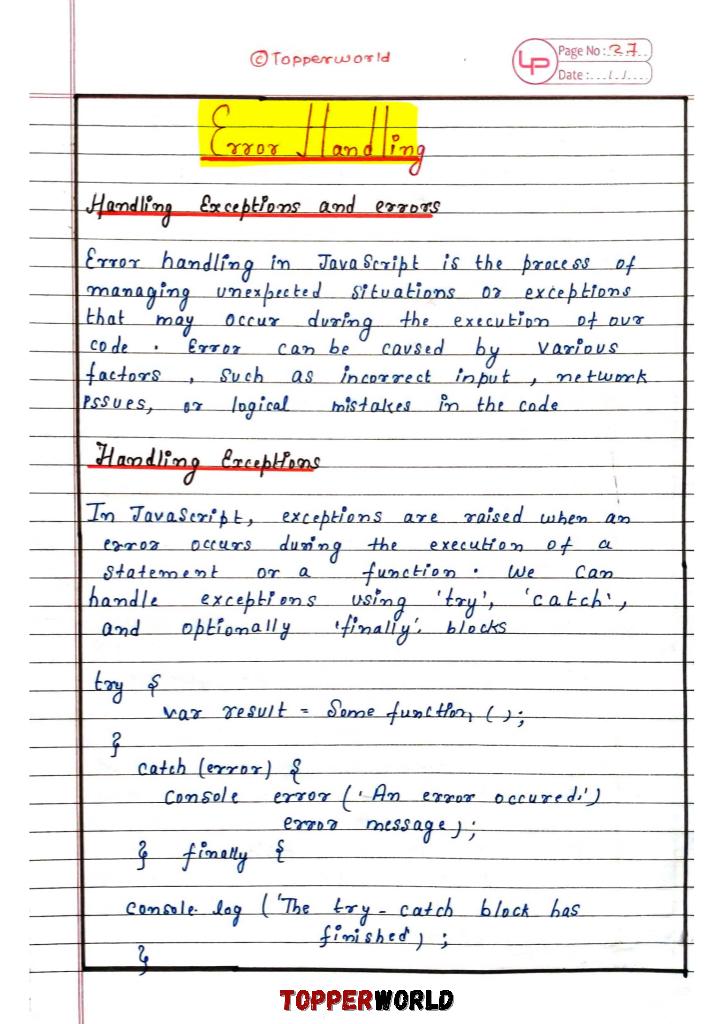 © Topperworld
Page No: 27
Date: .../.../...
Error Handling
Handling Exceptions and errors
Error handling in JavaScript is the process of
managing unexpected situations or exceptions
that may occur during the execution of our
code. Error can be caused by various
factors, such as incorrect input, network
issues, or logical mistakes in the code
Handling Exceptions
In JavaScript, exceptions are raised when an
error occurs during the execution of a
statement or a function. We can
handle exceptions using 'try', 'catch',
and optionally 'finally'. blocks
try {
var result = Some function ();
}
catch (error) {
console error ('An error occured.')
error message);
} finally {
console.log ('The try-catch block has
finished');
}
TOPPERWORLD